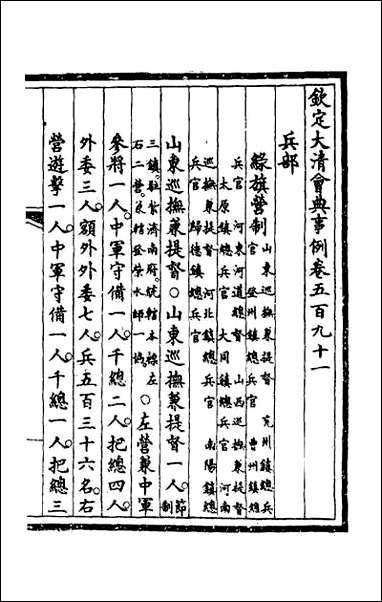 欽定大清會典事例卷五百九十一
兵部
綠旗營制
山東巡撫兼提督 兗州鎮總兵
官 登州鎮總兵官 曹州鎮總
兵官 河東河道總督 山西巡撫兼提督
太原鎮總兵官 大同鎮總兵官 河南
巡撫兼提督 河北鎮總兵官 南陽鎮總
兵官 歸德鎮總兵官
山東巡撫兼提督○山東巡撫兼提督一人節制
三鎮駐紮濟南府統轄本標左
右二營兼轄登榮水師一協○左營兼中軍
參將一人中軍守備一人千總二人把總四人
外委三人額外外委七人兵五百三十六名右
營遊擊一人中軍守備一人千總一人把總三